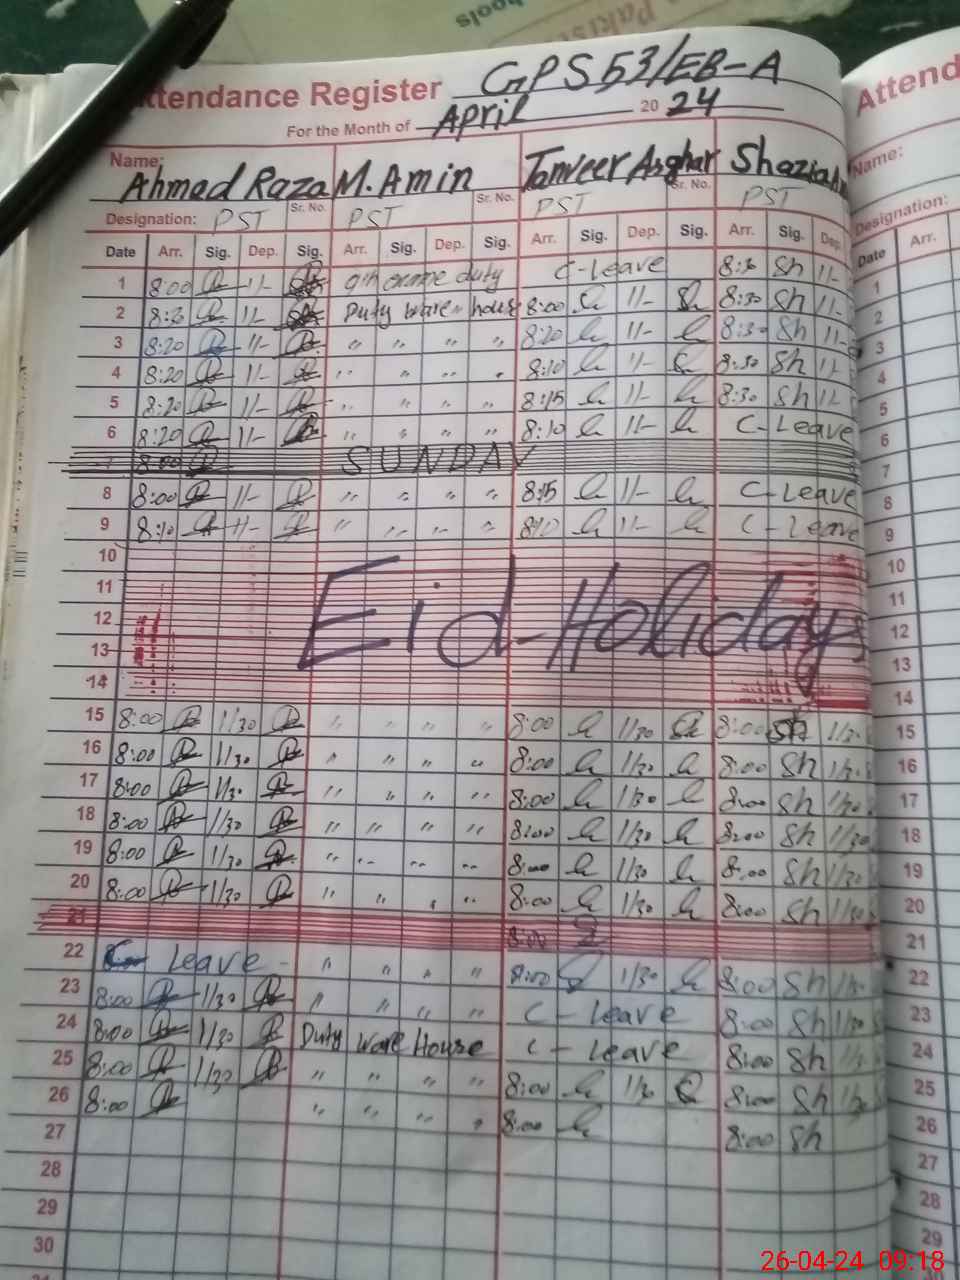 Pakist
hools
ttendance Register GPS 53/EB-A
For the Month of April 20 24
Attend
Name: Ahmad Raza M. Amin Tanveer Asghar Shazia
Name:
Designation: PST Sr. No. PST Sr. No. PST Sr. No. PST
Designation:
Date Arr. Sig. Dep. Sig. Arr. Sig. Dep. Sig. Arr. Sig. Dep. Sig. Arr. Sig. Dep.
Date Arr.
1 8:00 11/- duty C-Leave 8:30 Sh 11/- 1
2 8:30 11/- Duty Ware house 8:00 11/- 8:30 Sh 11/- 2
3 8:20 11/- " " " " 8:20 11/- 8:30 Sh 11/- 3
4 8:20 11/- " " " " 8:10 11/- 8:30 Sh 11/- 4
5 8:20 11/- " " " " 8:15 11/- 8:30 Sh 11/- 5
6 8:20 11/- " " " " 8:10 11/- C-Leave 6
7 8:00 SUNDAY 7
8 8:00 11/- " " " " 8:15 11/- C-Leave 8
9 8:10 11/- " " " " 8:10 11/- C-Leave 9
10 10
11 11
12 Eid-Holidays 12
13 13
14 14
15 8:00 1/30 " " " " 8:00 1/30 8:00 Sh 1/30 15
16 8:00 1/30 " " " " 8:00 1/30 8:00 Sh 1/30 16
17 8:00 1/30 " " " " 8:00 1/30 8:00 Sh 1/30 17
18 8:00 1/30 " " " " 8:00 1/30 8:00 Sh 1/30 18
19 8:00 1/30 " " " " 8:00 1/30 8:00 Sh 1/30 19
20 8:00 1/30 " " " " 8:00 1/30 8:00 Sh 1/30 20
21 8:00 21
22 C- Leave " " " " 8:00 1/30 8:00 Sh 1/30 22
23 8:00 1/30 " " " " C-Leave 8:00 Sh 1/30 23
24 8:00 1/30 Duty Ware House C-Leave 8:00 Sh 1/30 24
25 8:00 1/30 " " " " 8:00 1/30 8:00 Sh 1/30 25
26 8:00 " " " " 8:00 8:00 Sh 26
27 27
28 28
29 29
30
26-04-24 09:18